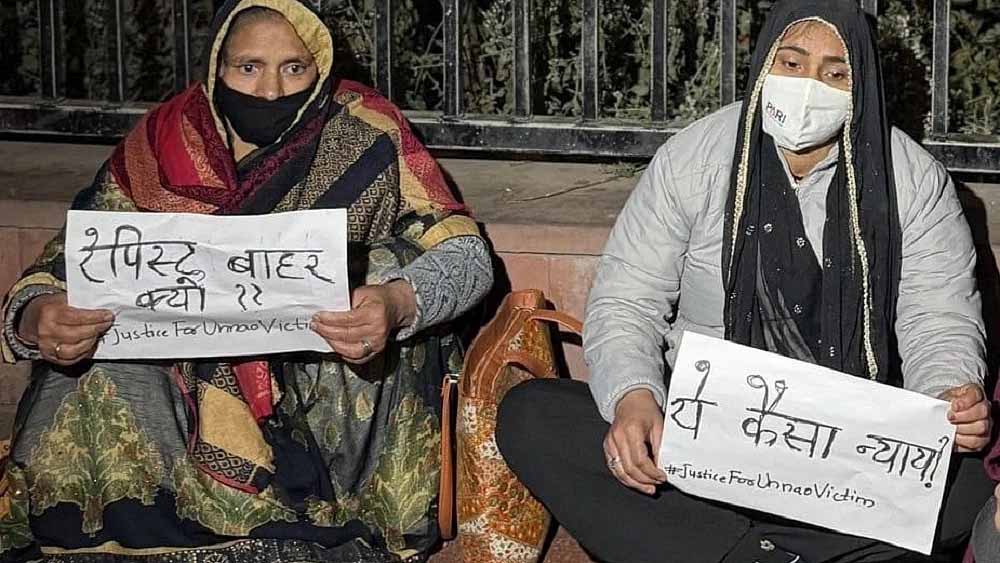 रेपिस्ट बाहर
क्यों ??
#JusticeForUnnaoVictim
PARI
ये कैसा न्याय
#JusticeForUnnaoVictim